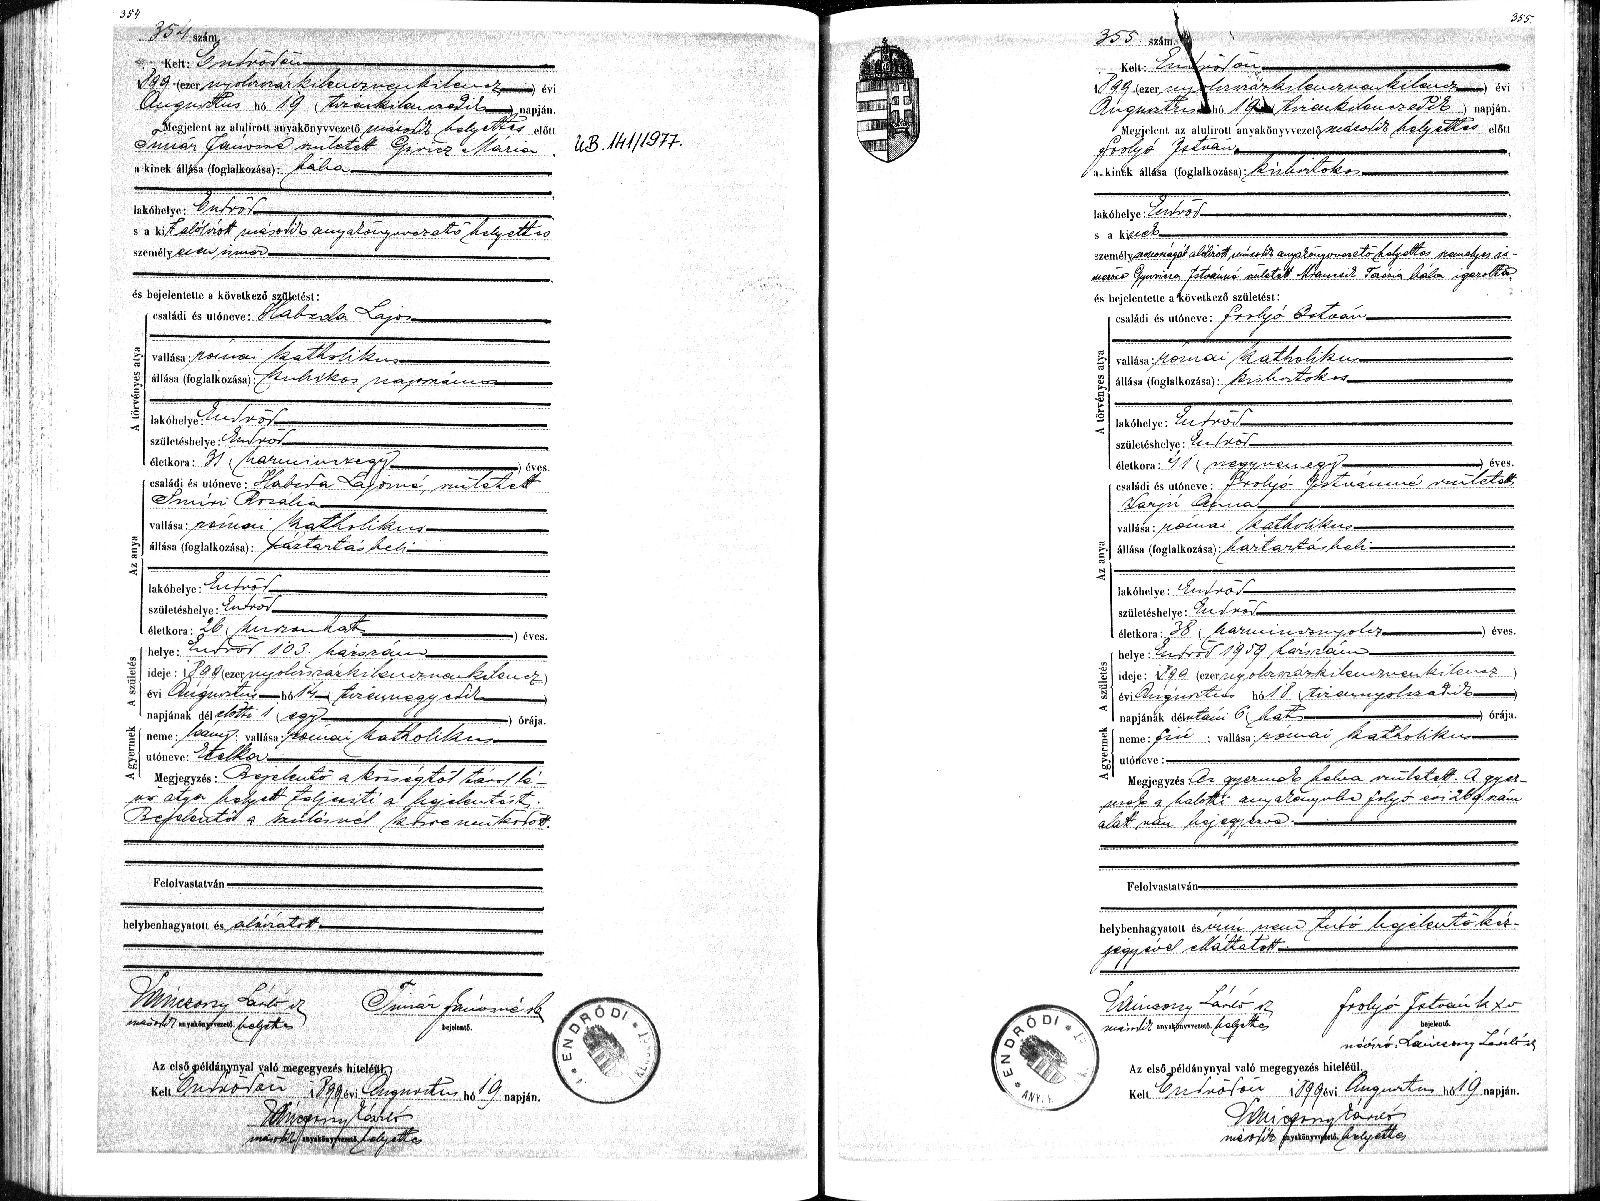 354
354 szám.
Kelt: Endrődön
899 (ezernyolczszázkilenczvenkilencz) évi
Augusztus hó 19 (tizenkilenczedik) napján.
Megjelent az alulírott anyakönyvvezető második helyettes előtt
Timár Jánosné született Gyoricz Mária
a kinek állása (foglalkozása): bába
lakóhelye: Endrőd
s a kit alólírott második anyakönyvvezető helyettes
személyesen ismer
és bejelentette a következő születést:
A törvényes atya
családi és utóneve: Habeda Lajos
vallása: római katholikus
állása (foglalkozása): kubikos napszámos
lakóhelye: Endrőd
születéshelye: Endrőd
életkora: 31 (harminczegy) éves.
Az anya
családi és utóneve: Habeda Lajosné, született
Rozália
vallása: római katholikus
állása (foglalkozása): háztartásbeli
lakóhelye: Endrőd
születéshelye: Endrőd
életkora: 26 (huszonhat) éves.
A születés
helye: Endrőd 103. házszám
ideje: 899 (ezernyolczszázkilenczvenkilencz)
évi Augusztus hó 14 (tizennegyedik)
napjának délelőtti 1 (egy) órája.
A gyermek
neme: leány; vallása: római katholikus
utóneve: Etelka
Megjegyzés: Bejelentő a községtől távol lé-
vő atya helyett teljesíti a bejelentést.
Bejelentő a szülésnél közreműködött.
Felolvastatván
helybenhagyatott és aláíratott
László
második anyakönyvvezető helyettes
Timár Jánosné sk
bejelentő.
Az első példánynyal való megegyezés hiteléül.
Kelt Endrődön 1899 évi Augusztus hó 19 napján.
László
második anyakönyvvezető helyettes
UB. 141/1977.
ENDRŐDI
355.
355 szám.
Kelt: Endrődön
899 (ezernyolczszázkilenczvenkilencz) évi
Augusztus hó 19 (tizenkilenczedik) napján.
Megjelent az alulírott anyakönyvvezető második helyettes előtt
Frolyó István
a kinek állása (foglalkozása): kisbirtokos
lakóhelye: Endrőd
s a kinek
személyazonosságát alólírott második anyakönyvvezető helyettes személyes is-
merőse Istvánné született bába igazolta
és bejelentette a következő születést:
A törvényes atya
családi és utóneve: Frolyó István
vallása: római katholikus
állása (foglalkozása): kisbirtokos
lakóhelye: Endrőd
születéshelye: Endrőd
életkora: 41 (negyvenegy) éves.
Az anya
családi és utóneve: Frolyó Istvánné született
Varjú Anna
vallása: római katholikus
állása (foglalkozása): háztartásbeli
lakóhelye: Endrőd
születéshelye: Endrőd
életkora: 38 (harmincznyolcz) éves.
A születés
helye: Endrőd 1959 házszám
ideje: 899 (ezernyolczszázkilenczvenkilencz)
évi Augusztus hó 18 (tizennyolczadik)
napjának délutáni 6 (hat) órája.
A gyermek
neme: fiú; vallása: római katholikus
utóneve:
Megjegyzés: Az gyermek halva született. A gyer-
mek a halotti anyakönyvbe folyó évi 269 szám
alatt van bejegyezve.
Felolvastatván
helybenhagyatott és írni nem tudó bejelentő kéz-
jegyével elláttatott
László
második anyakönyvvezető helyettes
Frolyó István k x v
bejelentő.
névíró: László
Az első példánynyal való megegyezés hiteléül.
Kelt Endrődön 1899 évi Augusztus hó 19 napján.
László
második anyakönyvvezető helyettes
ENDRŐDI